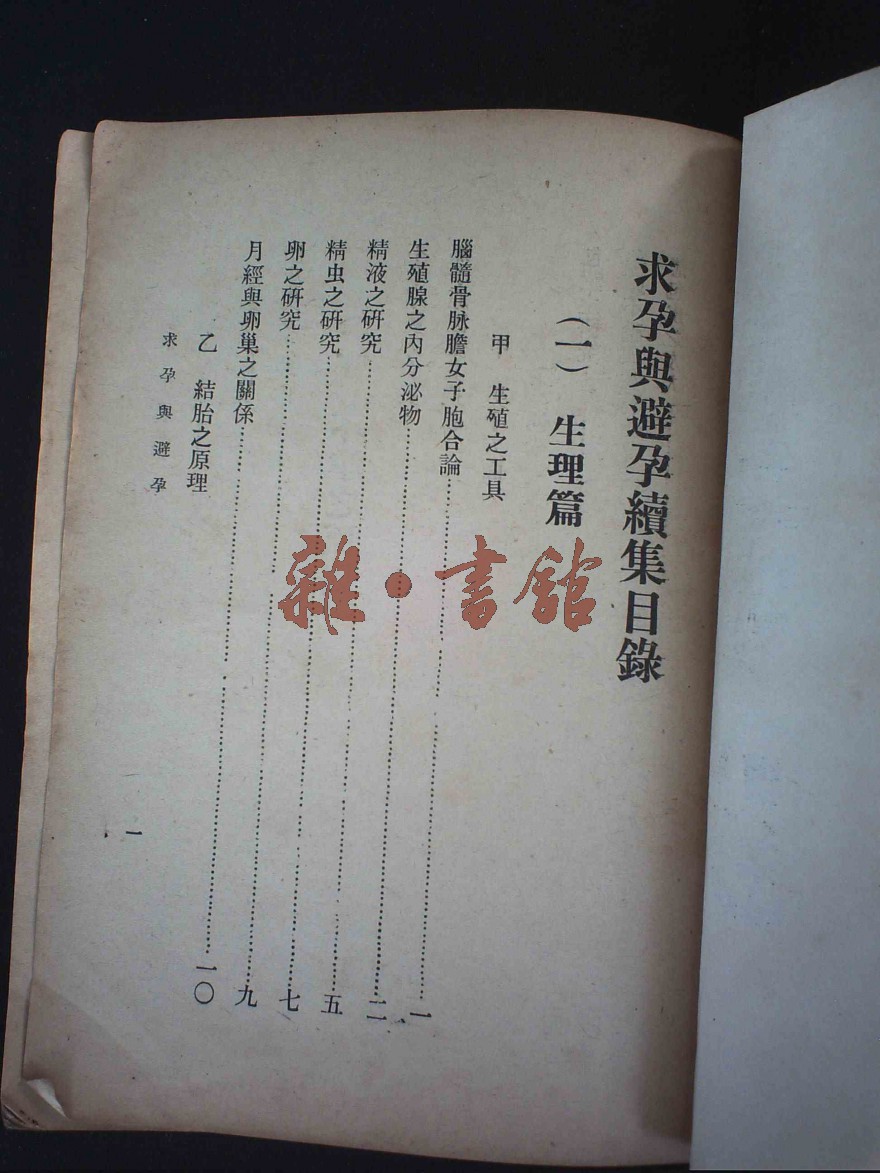 求孕與避孕續集目錄
（一） 生理篇
甲 生殖之工具
腦髓骨脉膽女子胞合論……一
生殖腺之內分泌物……二
精液之研究……五
精虫之研究……七
卵之研究……九
月經與卵巢之關係……一〇
乙 結胎之原理
求孕與避孕
一
雜·書館